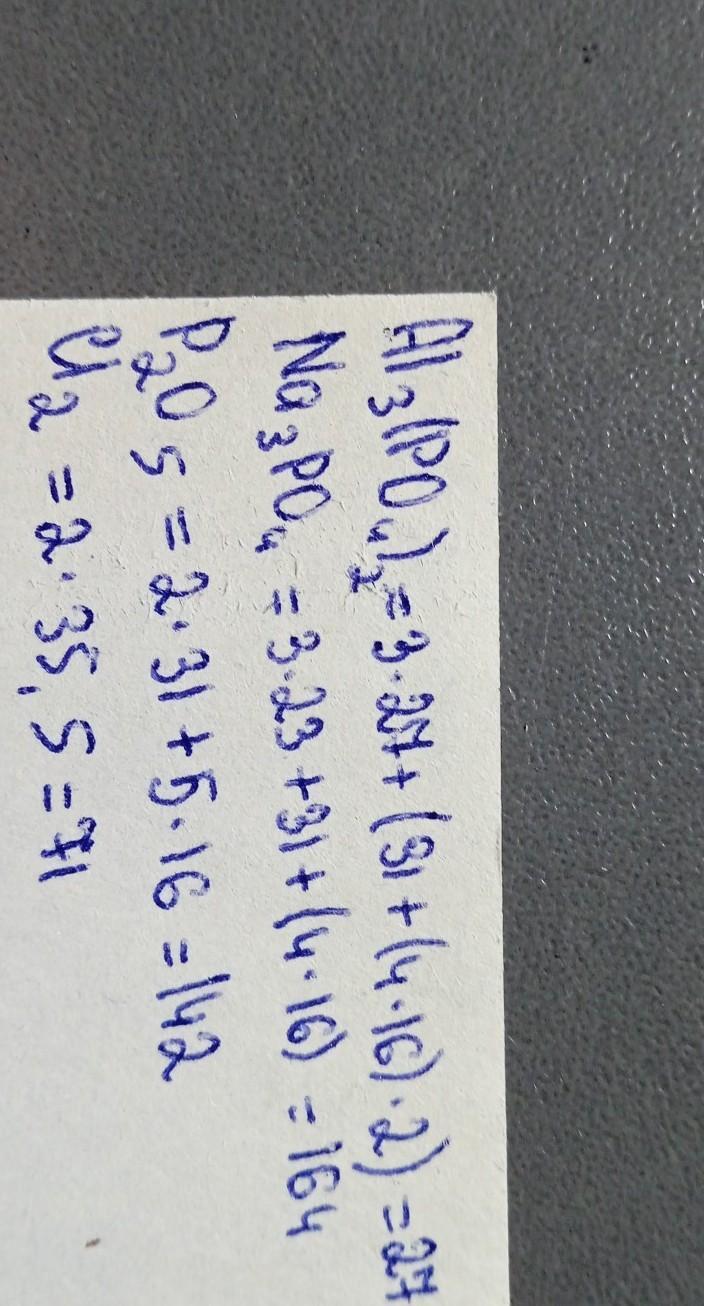 Al₃(PO₄)₂=3·27+(31+(4·16)·2)=27
Na₃PO₄=3·23+31+(4·16)=164
P₂O₅=2·31+5·16=142
Cl₂=2·35,5=71